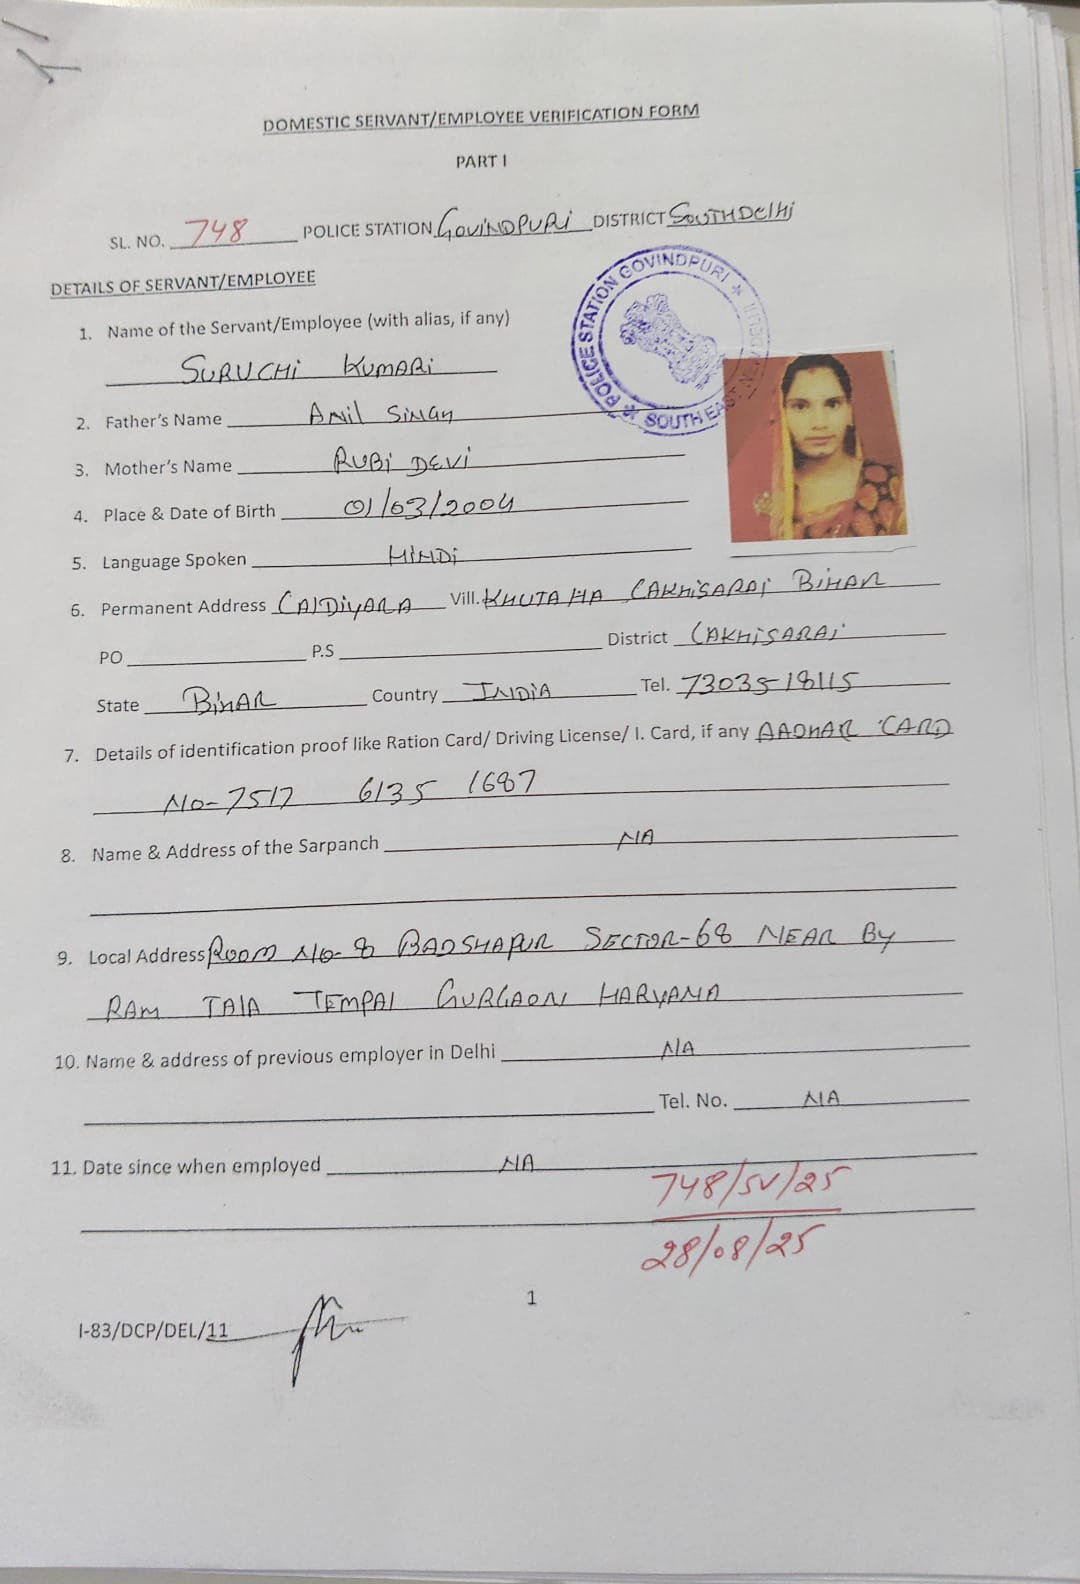 DOMESTIC SERVANT/EMPLOYEE VERIFICATION FORM
PART I
SL. NO. 748 POLICE STATION GOVINDPURI DISTRICT SOUTH DElHi
POLICE STATION GOVINDPURI * SOUTH EAST, NEW DELHI *
DETAILS OF SERVANT/EMPLOYEE
1. Name of the Servant/Employee (with alias, if any)
SURUCHi KUMARi
2. Father's Name ANil SiNGH
3. Mother's Name RUBi DEVi
4. Place & Date of Birth 01/03/2004
5. Language Spoken HiNDi
6. Permanent Address LAlDiYARA Vill. KHUTAHA LAKHiSARAi BiHAR
PO P.S District LAKHiSARAi
State BiHAR Country INDiA Tel. 7303518115
7. Details of identification proof like Ration Card/ Driving License/ I. Card, if any AADHAR CARD
No- 7517 6135 1687
8. Name & Address of the Sarpanch NA
9. Local Address ROOM No- 8 BADSHAPUR SECTOR-68 NEAR By
RAM TAlA TEMPAl GURGAON HARYANA
10. Name & address of previous employer in Delhi NA
Tel. No. NA
11. Date since when employed NA
748/SV/25
28/08/25
1
I-83/DCP/DEL/11